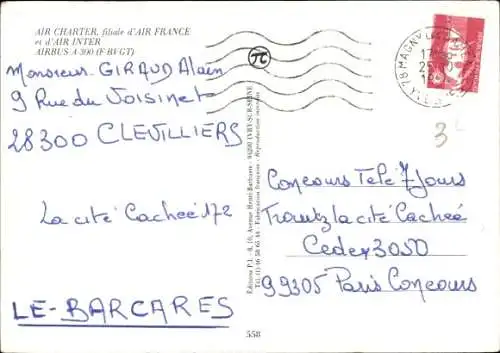 AIR CHARTER, filiale d'AIR FRANCE
et d'AIR INTER
AIRBUS A 300 (F-BVGT)
Monsieur GIRAUD Alain
9 Rue du Voisinet
28300 CLEVILLIERS
La cité Cachée 172
LE-BARCARES
Editions P.I. - 8, 10, Avenue Henri-Barbusse - 94200 IVRY-SUR-SEINE
Tél. (1) 46 58 65 44 - Fabrication française - Reproduction interdite
78 MAGNY
3
Concours Télé 7 Jours
Trautz la cité Cachée
Cedex 3050
99305 Paris Concours
558